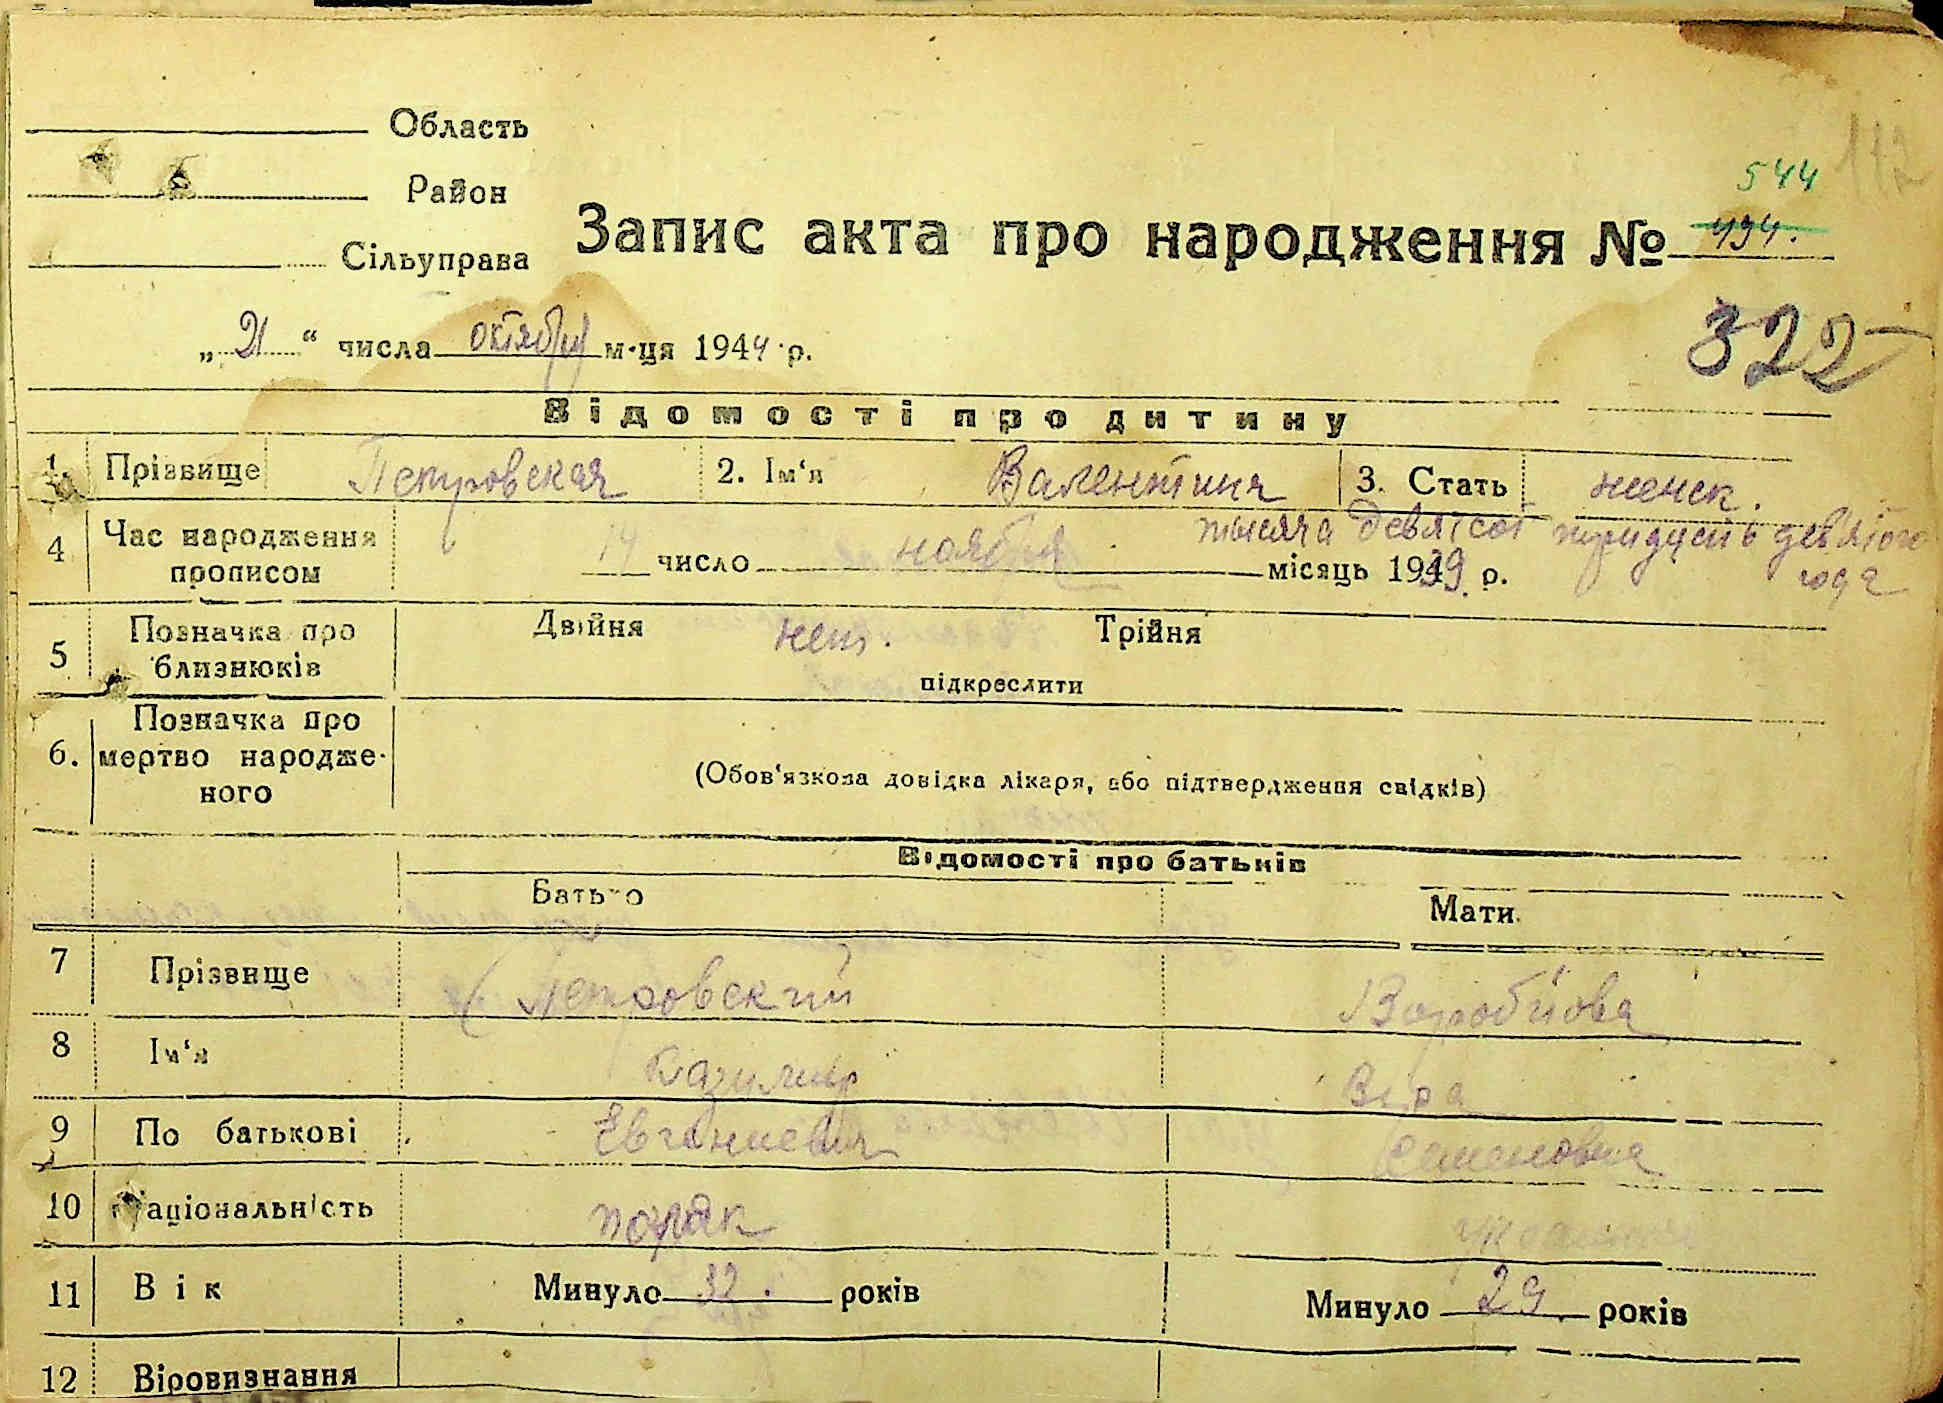 Область
Район
Сільуправа
Запис акта про народження №
544
494.
112
322
„21“ числа октября м-ця 1944 р.
Відомості про дитину
1. Прізвище Петровская 2. Ім‘я Валентина 3. Стать женск.
4 Час народження прописом 14 число ноября місяць 1939. р.
тысяча девятсот тридцать девятого года
5 Позначка про близнюків Двійня нет. Трійня
підкреслити
6. Позначка про мертво народже-ного
(Обов‘язкова довідка лікаря, або підтвердження свідків)
Відомості про батьків
Батько Мати
7 Прізвище Петровский Воробйова
8 Ім‘я Казимир Віра
9 По батькові Евгениевич Семеновна
10 Національність поляк
11 Вік Минуло 32. років Минуло 29. років
12 Віровизнання